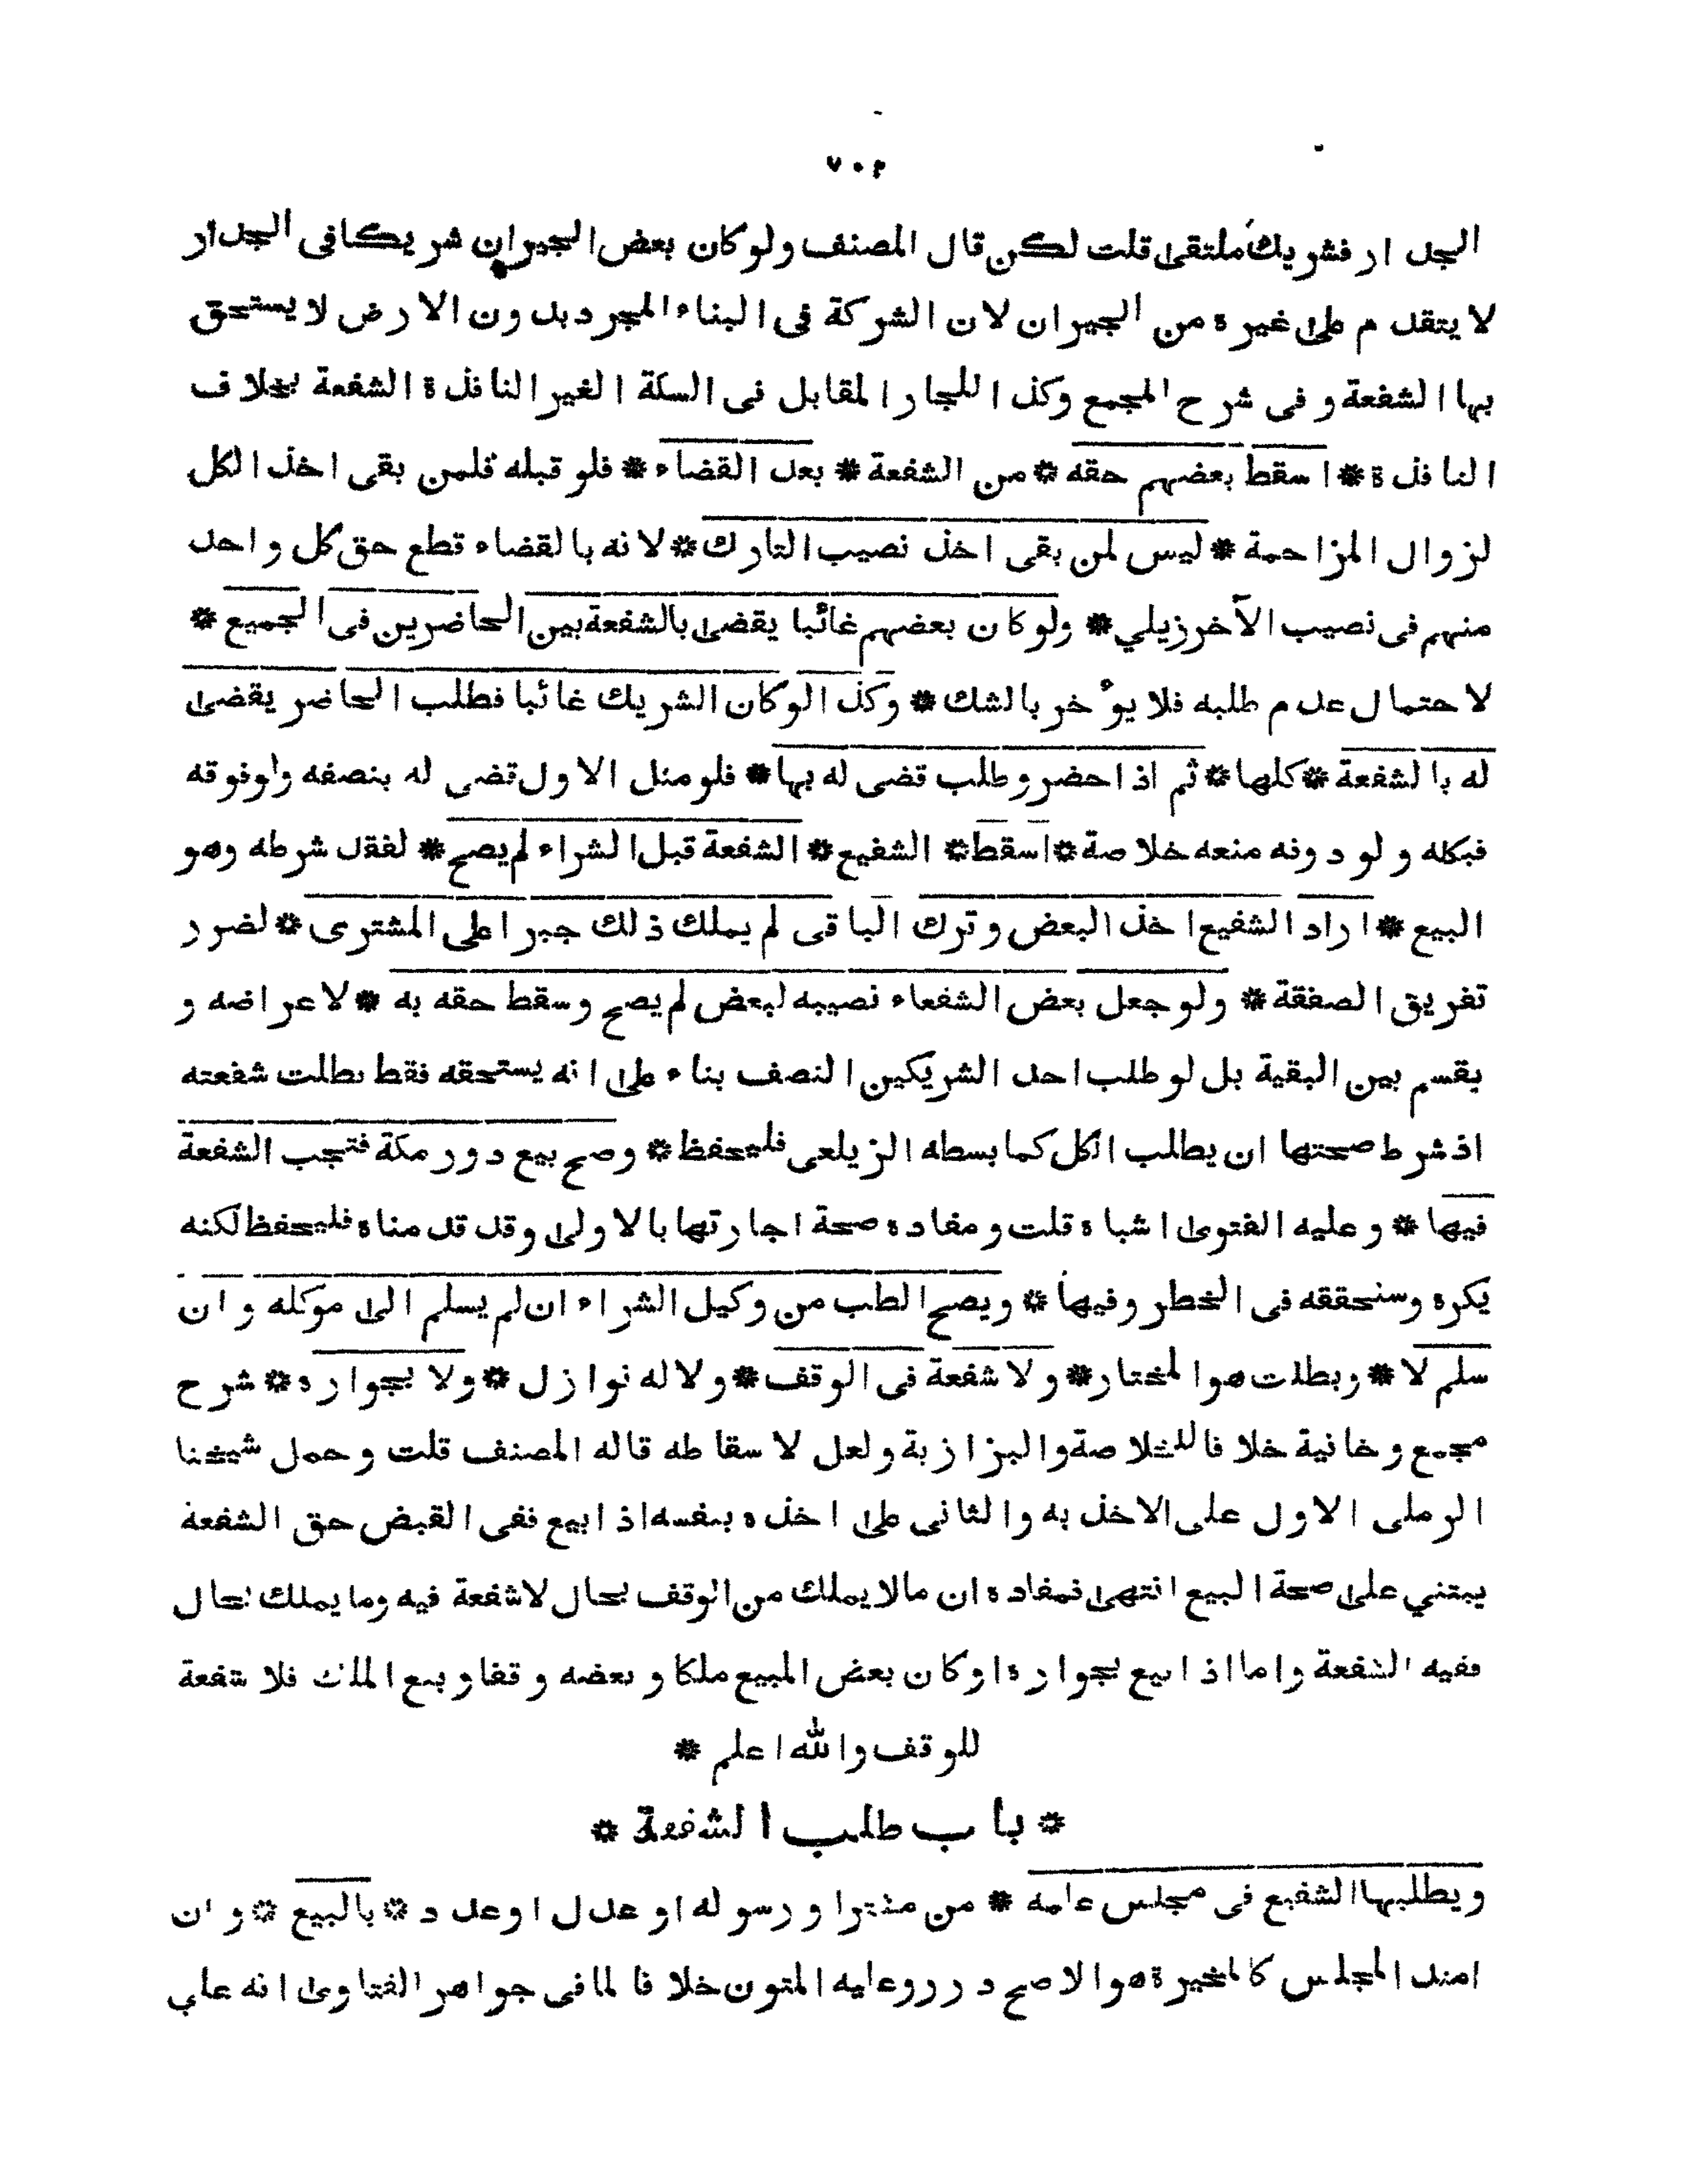 ٧٠٢
الجدار فشريك ملتقى قلت لكن قال المصنف ولو كان بعض الجيران شريكا فى الجدار
لا يتقدم على غيره من الجيران لان الشركة فى البناء المجرد بدون الارض لا يستحق
بها الشفعة وفى شرح المجمع وكذا للجار المقابل فى السكة الغير النافذة الشفعة بخلاف
النافذة * اسقط بعضهم حقه * من الشفعة * بعد القضاء * فلو قبله فلمن بقى اخذ الكل
لزوال المزاحمة * ليس لمن بقى اخذ نصيب التارك * لانه بالقضاء قطع حق كل واحد
منهم فى نصيب الآخر زيلي * ولو كان بعضهم غائبا يقضى بالشفعة بين الحاضرين فى الجميع *
لاحتمال عدم طلبه فلا يؤخر بالشك * وكذا لو كان الشريك غائبا فطلب الحاضر يقضى
له بالشفعة * كلها * ثم اذا حضر وطلب قضى له بها * فلو مثل الاول قضى له بنصفه ولو فوقه
فبكله ولو دونه منعه خلاصة * اسقط * الشفيع * الشفعة قبل الشراء لم يصح * لفقد شرطه وهو
البيع * اراد الشفيع اخذ البعض وترك الباقى لم يملك ذلك جبرا على المشترى * لضرر
تفريق الصفقة * ولو جعل بعض الشفعاء نصيبه لبعض لم يصح وسقط حقه به * لاعراضه و
يقسم بين البقية بل لو طلب احد الشريكين النصف بناء على انه يستحقه فقط بطلت شفعته
اذ شرط صحتها ان يطلب الكل كما بسطه الزيلعى فليحفظ * وصح بيع دور مكة فتجب الشفعة
فيها * وعليه الفتوى اشباه قلت ومفاده صحة اجارتها بالاولى وقد قدمناه فليحفظ لكنه
يكره وسنحققه فى الخطر وفيها * ويصح الطب من وكيل الشراء ان لم يسلم الى موكله وان
سلم لا * وبطلت هو المختار * ولا شفعة فى الوقف * ولا له نوازل * ولا بجواره * شرح
مجمع وخانية خلافا للخلاصة والبزازبة ولعل لا سقاطه قاله المصنف قلت وحمل شيخنا
الرملى الاول على الاخذ به والثانى على اخذه بنفسه اذا بيع ففى القبض حق الشفعة
يبتني على صحة البيع انتهى فمفاده ان مالا يملك من الوقف بحال لا شفعة فيه وما يملك بحال
ففيه الشفعة واما اذا بيع بجواره او كان بعض المبيع ملكا وبعضه وقفا وبيع الملك فلا شفعة
للوقف والله اعلم *
* باب طلب الشفعة *
ويطلبها الشفيع فى مجلس علمه * من مشتر او رسوله او عدل او عدد * بالبيع * وان
امتد المجلس كالمخيرة هو الاصح درر وعليه المتون خلافا لما فى جواهر الفتاوى انه على